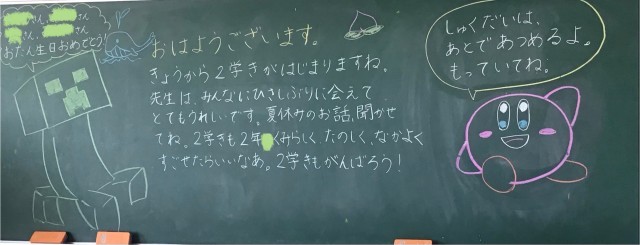 さん
さん、さん
おたん生日おめでとう!
おはようございます。
きょうから2学きがはじまりますね。
先生は、みんなにひさしぶりに会えて
とてもうれしいです。夏休みのお話、聞かせ
てね。2学きも2年くみらしく、たのしく、なかよく
すごせたらいいなあ。2学きもがんばろう!
しゅくだいは、
あとであつめるよ。
もっていてね。